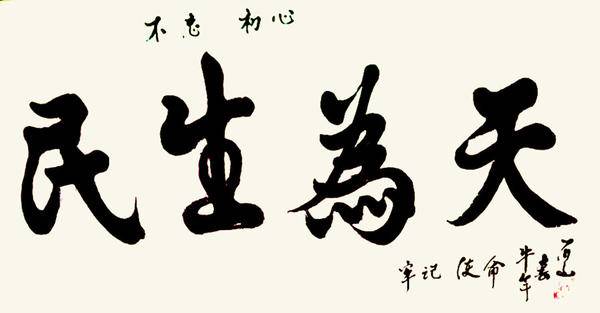 不忘 初心
民生為天
牢记 使命
牛年